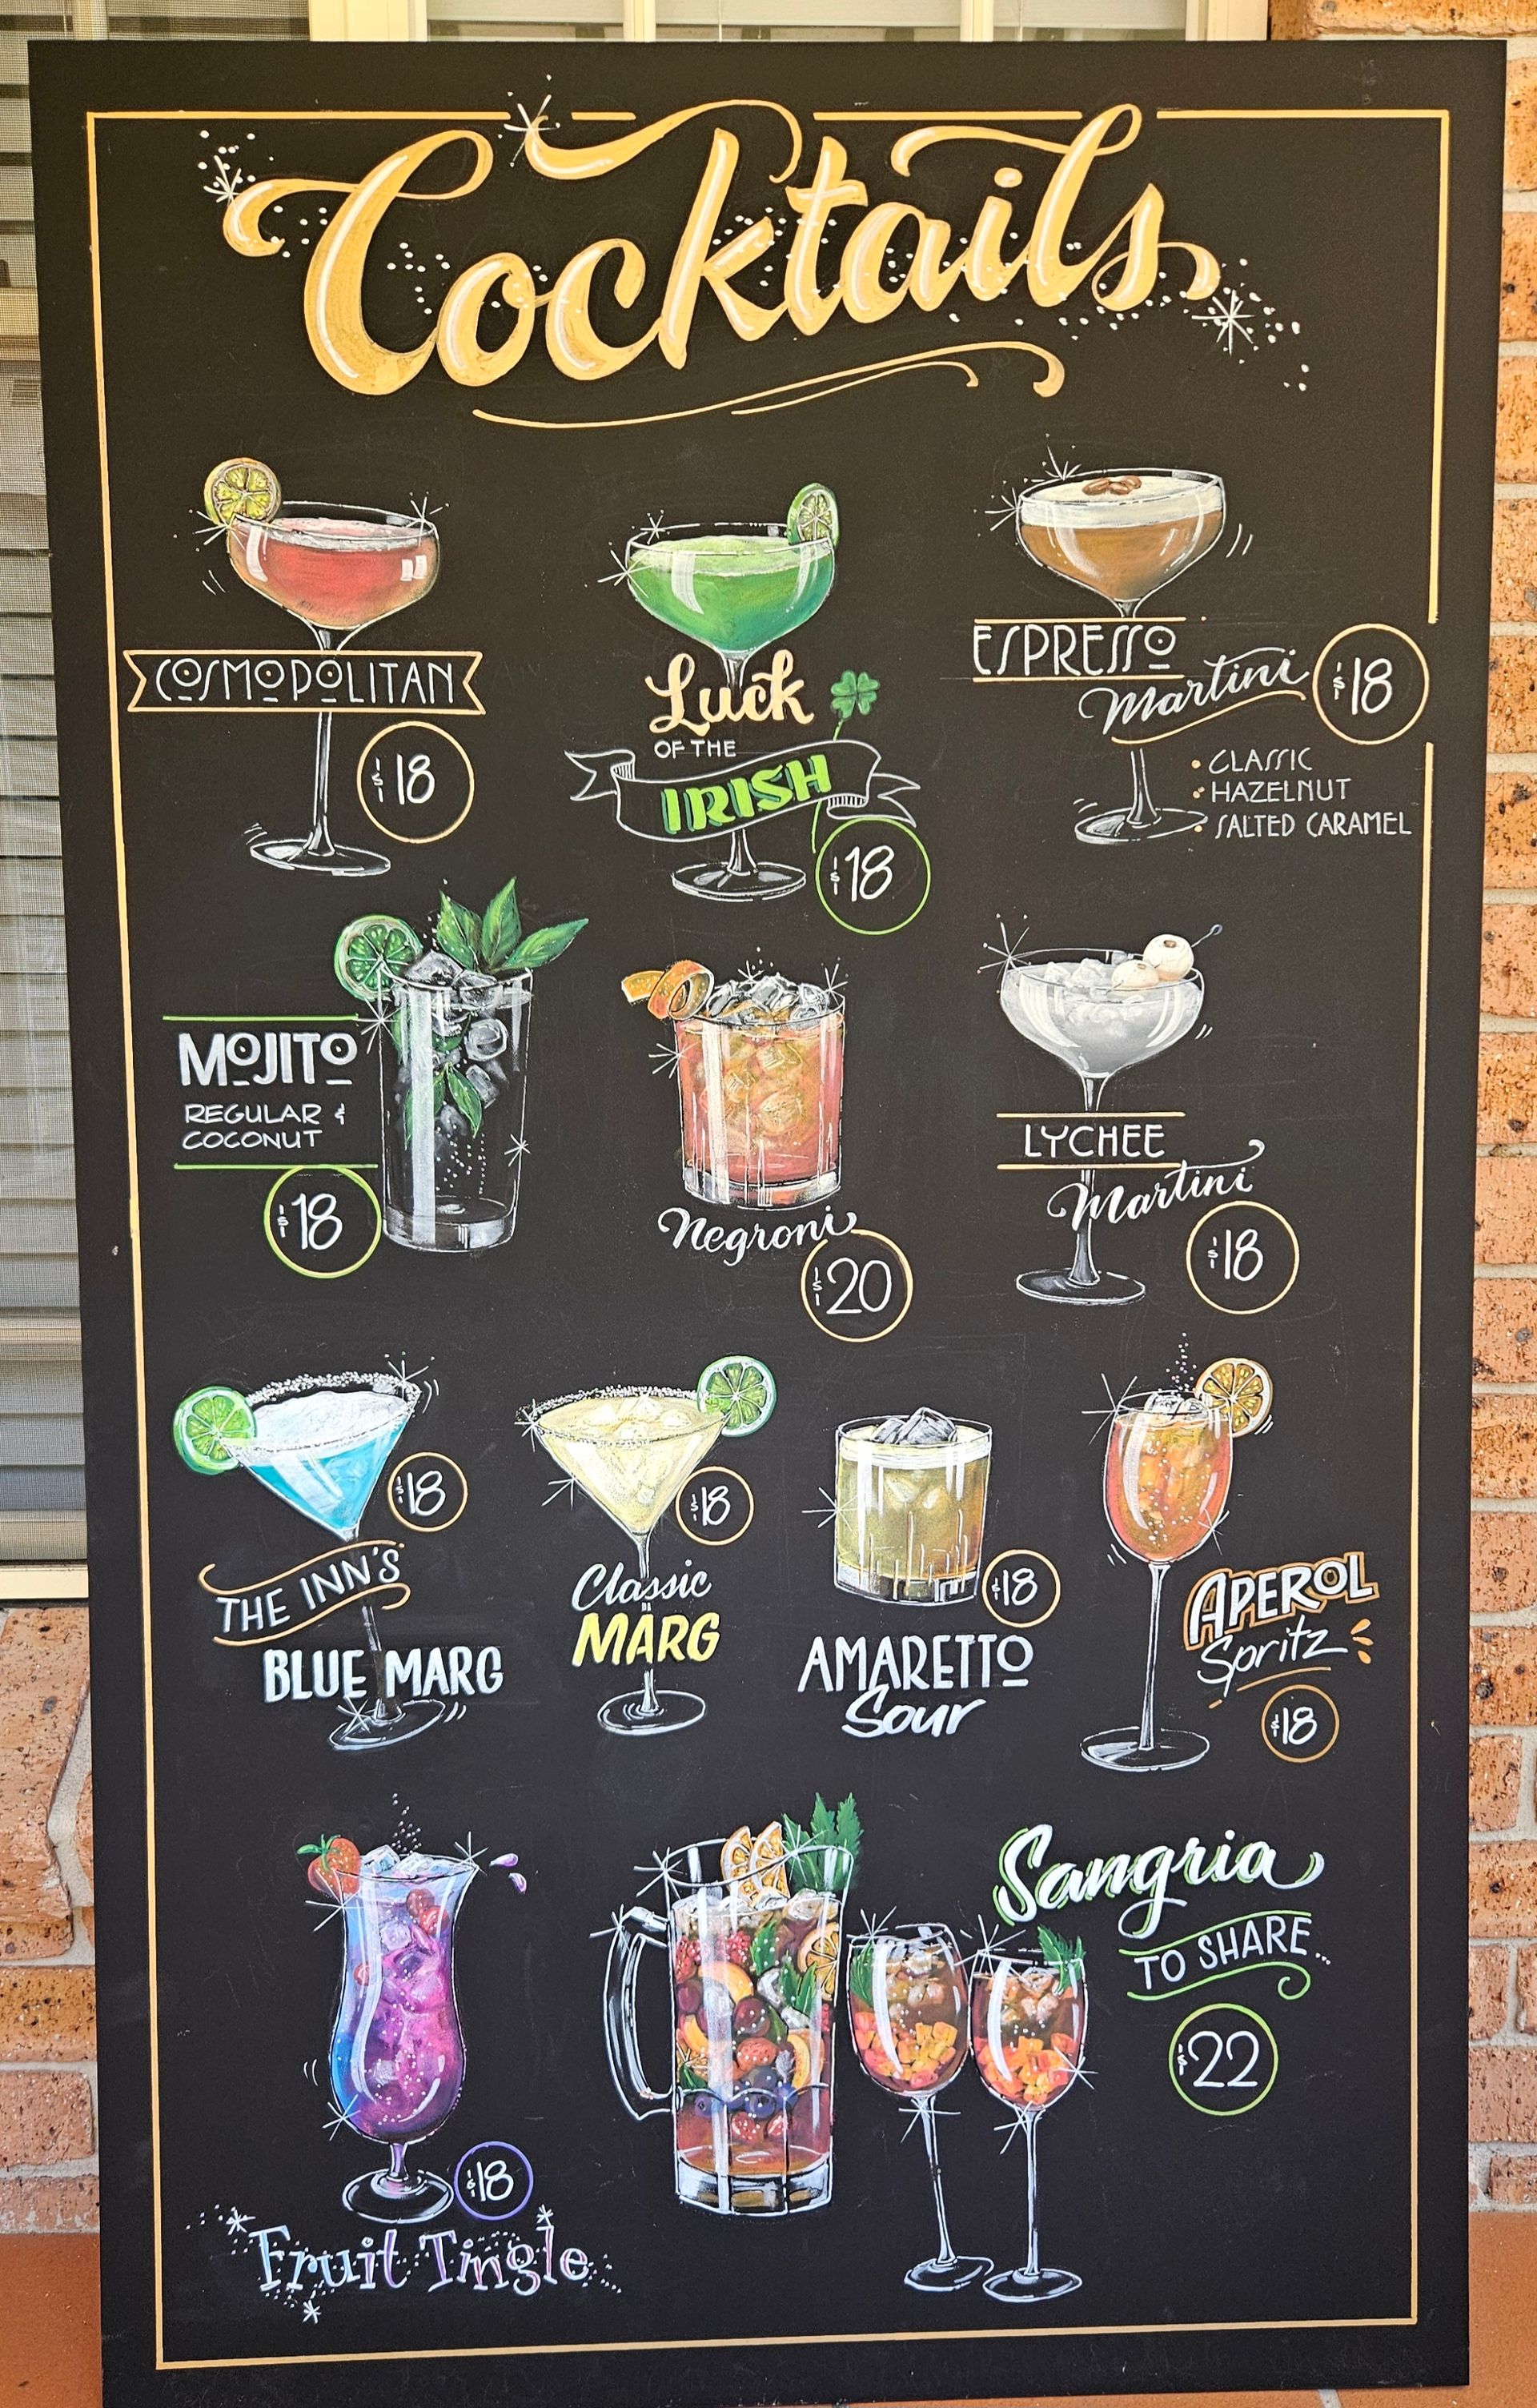 Cocktails
COSMOPOLITAN
$18
Luck
OF THE
IRISH
$18
ESPRESSO
Martini
$18
• CLASSIC
• HAZELNUT
• SALTED CARAMEL
MOJITO
REGULAR &
COCONUT
$18
Negroni
$20
LYCHEE
Martini
$18
$18
THE INN'S
BLUE MARG
$18
Classic
MARG
$18
AMARETTO
Sour
APEROL
Spritz
$18
$18
Fruit Tingle
Sangria
TO SHARE..
$22